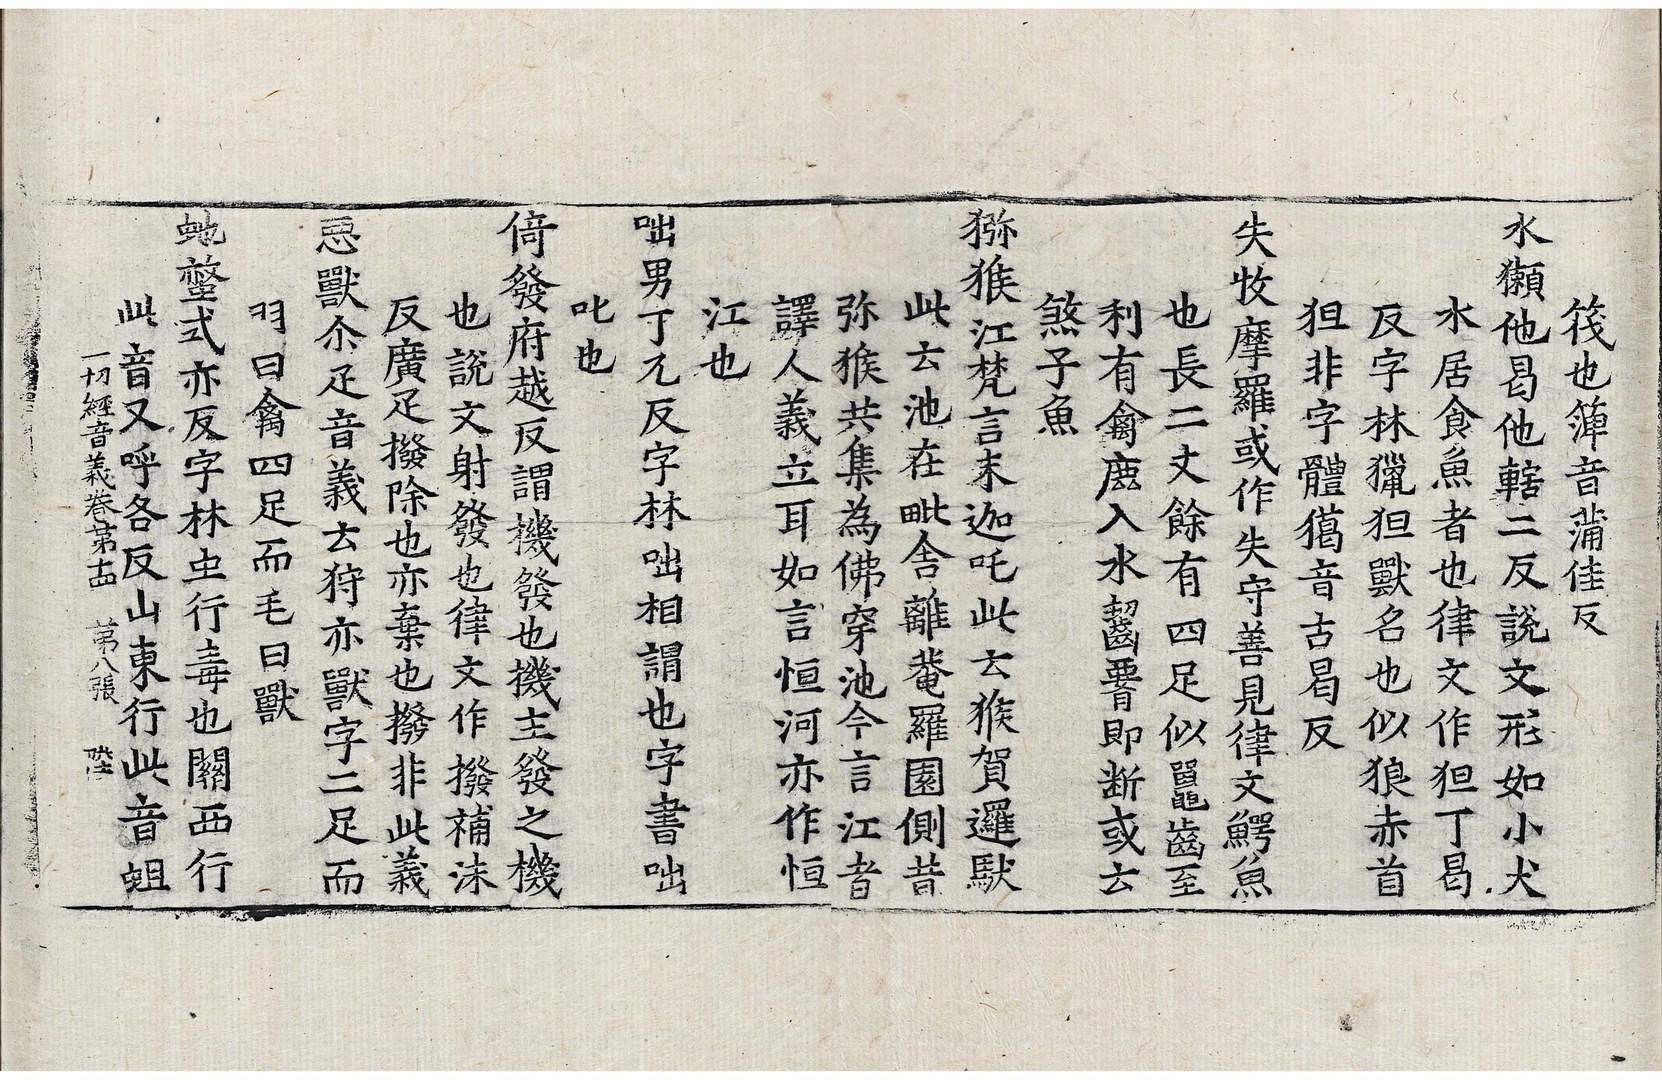 筏也簰音蒲佳反
水獺他曷他轄二反説文形如小犬
水居食魚者也律文作狚丁曷
反字林獵狚獸名也似狼赤首
狚非字體獦音古曷反
失牧摩羅或作失守善見律文鰐魚
也長二丈餘有四足似鼉齒至
利有禽鹿入水齧𦝫即断或云
煞子魚
猕猴江梵言末迦吒此云猴賀邏馱
此云池在毗舍離菴羅園側昔
弥猴共集為佛穿池今言江者
譯人義立耳如言恒河亦作恒
江也
咄男丁兀反字林咄相謂也字書咄
叱也
倚發府越反謂機發也機主發之機
也説文射發也律文作撥補沬
反廣疋撥除也亦棄也撥非此義
惡獸尒疋音義云狩亦獸字二足而
羽曰禽四足而毛曰獸
虵螫式亦反字林虫行毒也關西行
此音又呼各反山東行此音蛆
一切經音義卷第十四　第八張　陛